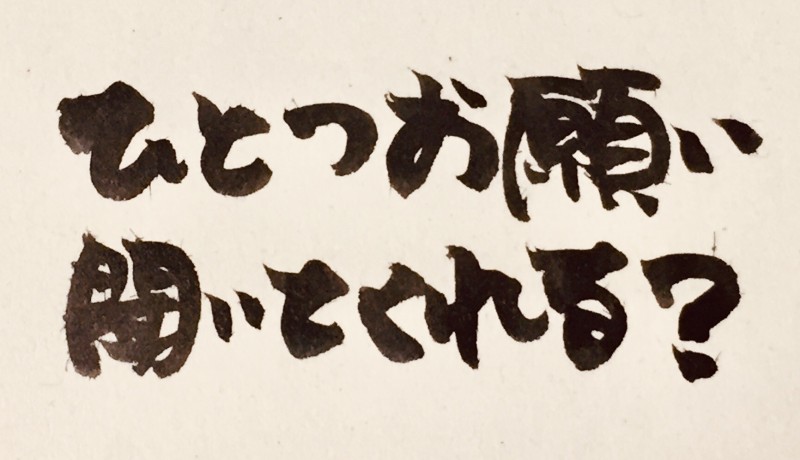 ひとつお願い
聞いてくれる?